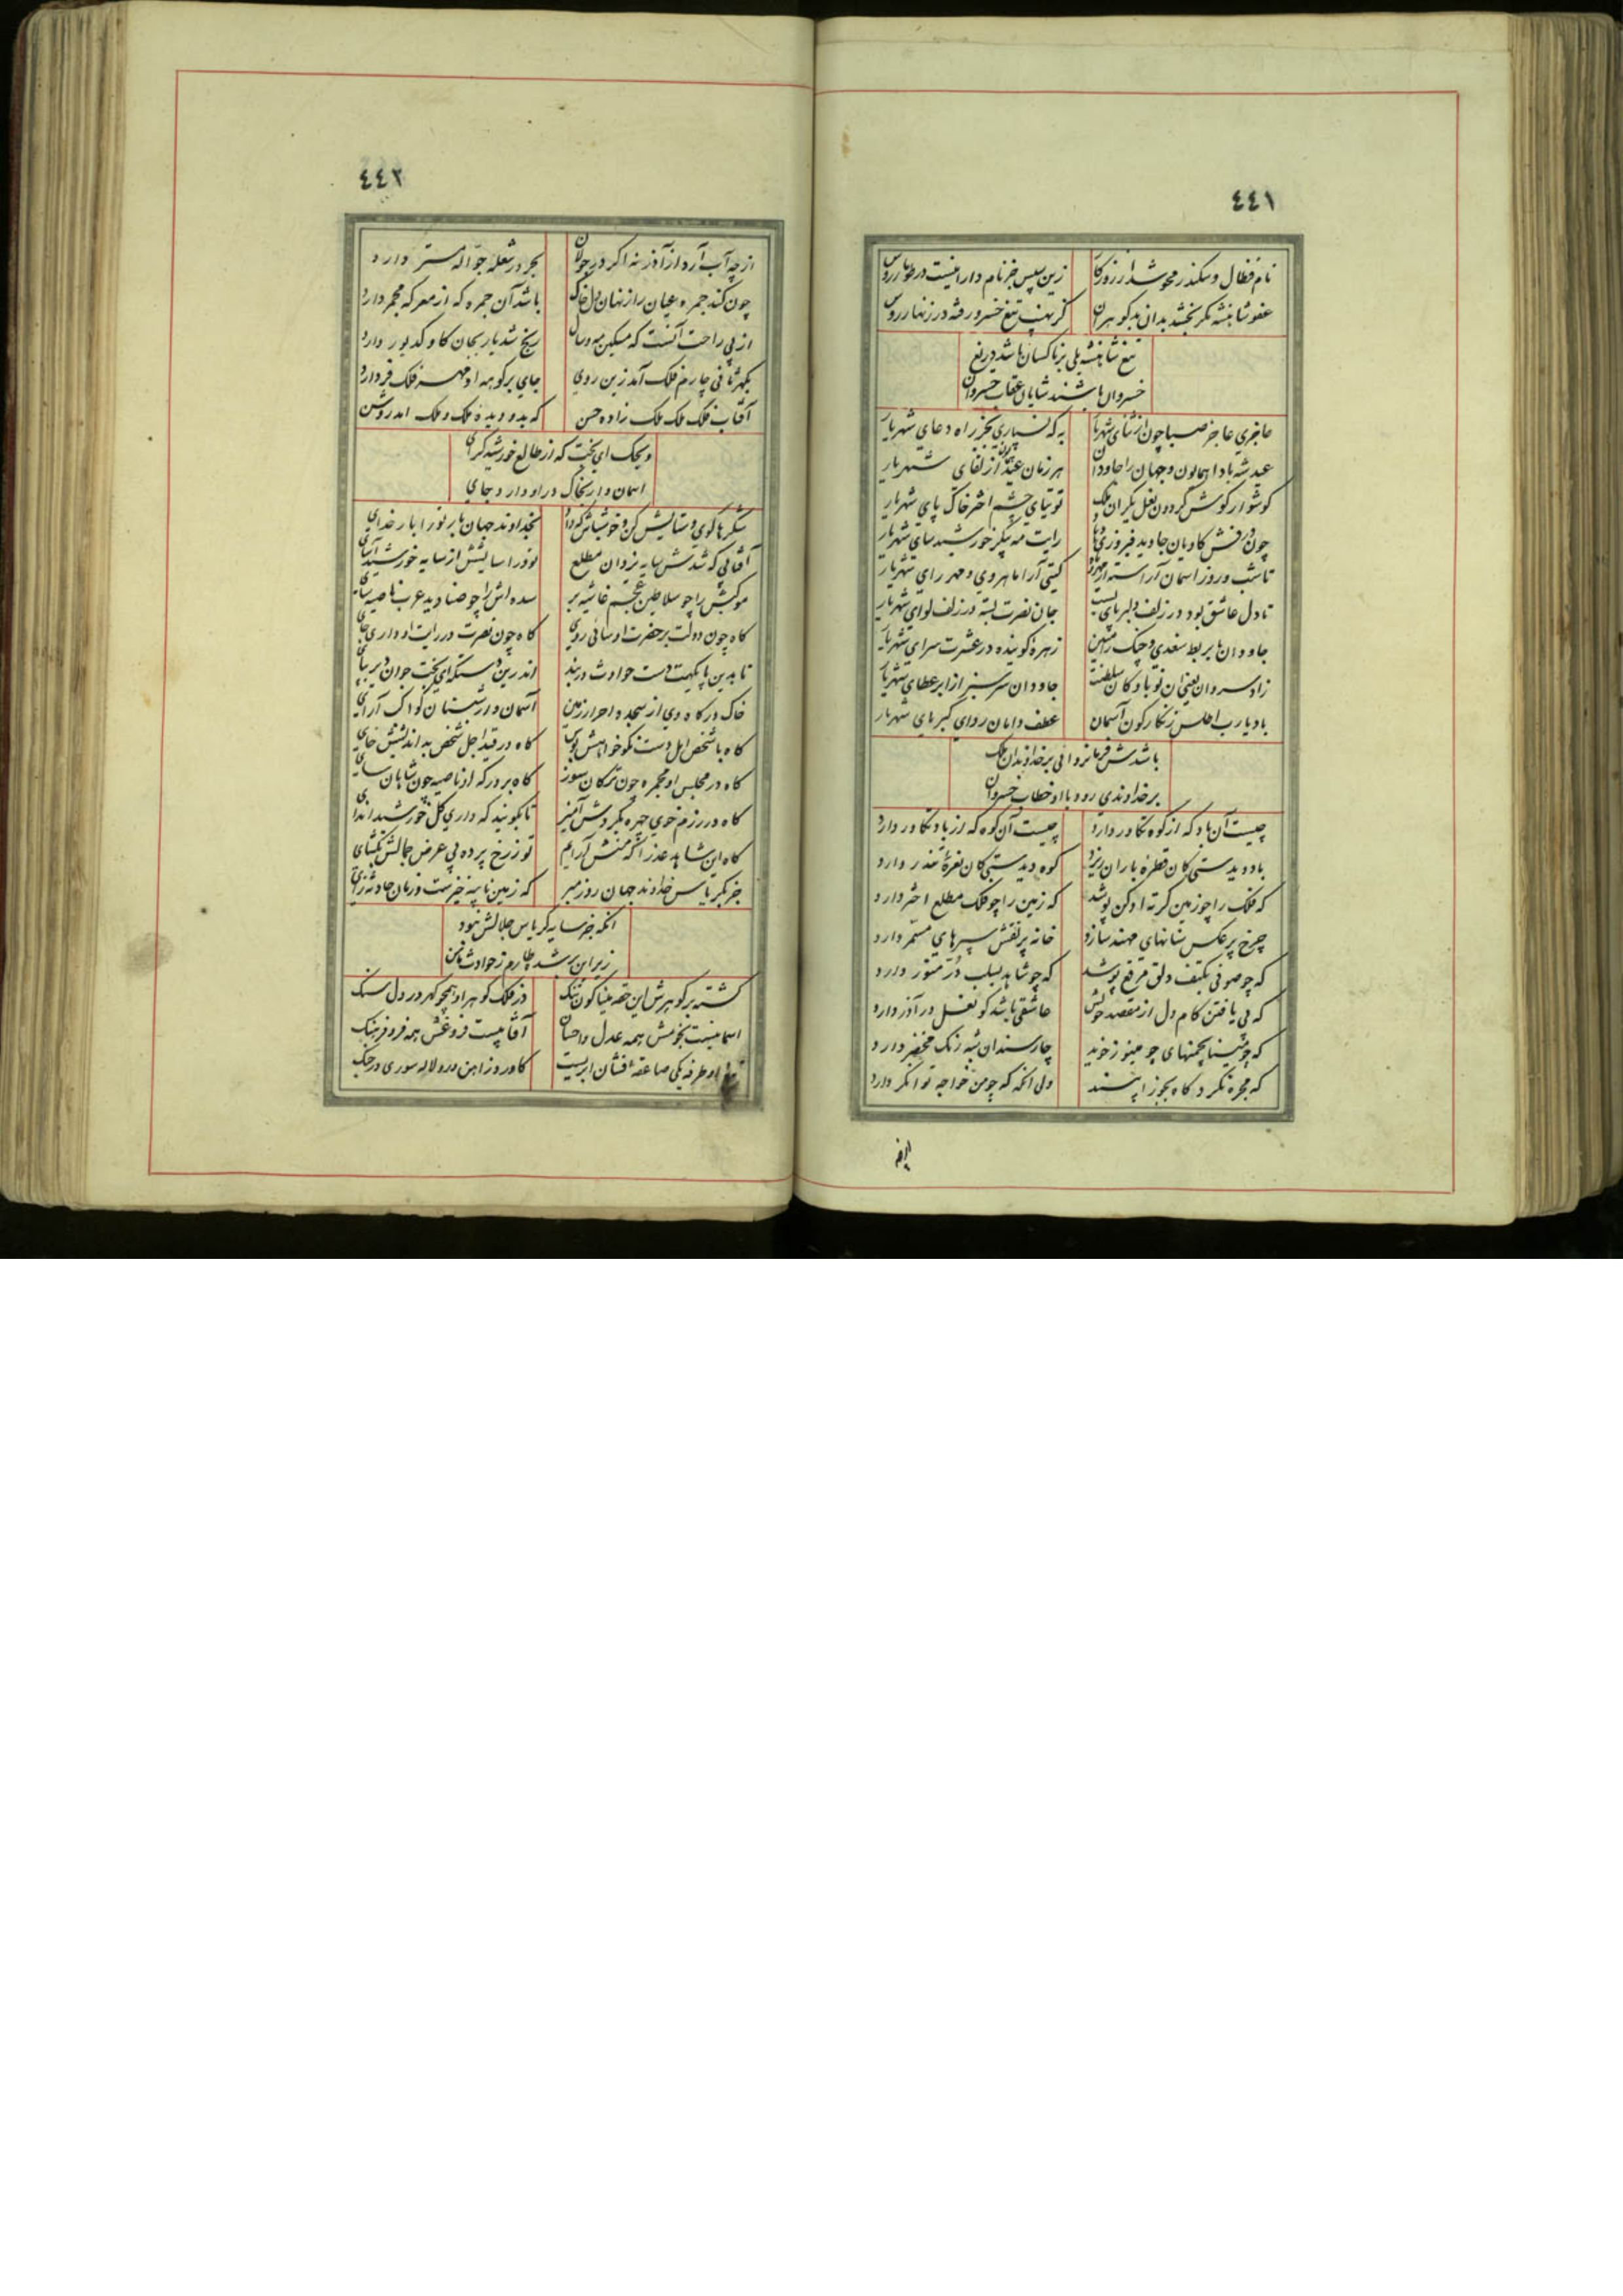 ٤٤١
نام فغال و سکندر محو شد از روزکار زین سپس جز نام دارا نیست در طومار روس
عفو شاهنشه مکر بخشد بدان بدکوهران کز نهیب تیغ خسرو رفته در زنهار روس
تیغ شاهنشه بلی بر ناکسان باشد دریغ
خسروان باشند شایان عقاب خسروان
عاجزی عاجز صبا چون از ثنای شهریار به که نسپاری بجز راه دعای شهریار
عید شه بادا همایون و جهان را جاودان هر زمان عیدی از لقای شهریار
کوشوار کوش کردون نعل یکران ملک توتیای چشم اختر خاک پای شهریار
چون درفش کاویان جاوید فیروزی رایت مه پیکر خورشید سای شهریار
تا شب و روز آسمان آراسته از مهر و کیتی آرا ماه روی و مهر رای شهریار
تا دل عاشق بود در زلف دلبر پای بست جان نصرت بسته در زلف لوای شهریار
جاودان با بربط سغدی و چنک رامتین زهره کوینده در عشرت سرای شهریار
زاد سروان یعنی آن نوباوکان سلطنت جاودان سرسبز از ابر عطای شهریار
باد یارب اطلس زنکارکون آسمان عطف دامان ردای کبریای شهریار
باشدش فرمانروائی بر خداوندان ملک
بر خداوندی رود با او خطاب خسروان
چیست آن باد که از کوه تکاور دارد چیست آن کوه که از باد تکاور دارد
باد دیدستی کان قطره باران ریزد کوه دیدستی کان نعره تندر دارد
که فلک را چو زمین کرته ادکن پوشد که زمین را چو فلک مطلع اختر دارد
چرخ پر عکس سنانهای مهند سازد خانه پر نقش سپرهای مسمر دارد
که چو صوفی بکتف دلق مرقع پوشد که چو شاهد بسلب در منثور دارد
که پی یافتن کام دل از مقصد خویش عاشقی باشد کو نعل در آذر دارد
که چو مینا بچمنهای چو مینو زخوید چار سندان شبه رنک مخضر دارد
که مجره نکرد کاه بجوزا بیند ولی آنکه که چو من خواجه توانکر دارد
٤٤٢
از چه آب آرد از آذر نه اکر در جولان بحر در شعله جواله مستر دارد
چون کند جمره عیان راز نهان دل خاک باشد آن جمره که از معرکه مجمر دارد
از پی راحت آنست که مسکین رنج شدیار بجان کاو کدیور دارد
جای بر کوهه او مهر فلک فر دارد
آفتاب فلک ملک ملک زاده حسن که بدو دیده ملک و ملک آمد روشن
ویحک ای بخت که از طالع خورشید کرای
آسمان وار بخاک در او دارد جای
شکرها کوی و ستایش کن و خوشباش که داد بخداوند جهان بار تو را بار خدای
آفتابی که شدش سایه یزدان مطلع نور آسایشش از سایه خورشید آسای
موکبش را چو سلاطین عجم غاشیه بر سده اش را چو صنادید عرب ناصیه سای
کاه چون دولت بر حضرت او سائی روی کاه چون نصرت در رایت او داری جای
تا بدین پایکهت دست حوادث در بند اندرین دستکه ای بخت جوان دیر بپای
خاک درکاه وی از سجده احرار زمین آسمان وار شبستان کواکب آرای
کاه با شخص امل دست نکو خواهش بوس کاه در قید اجل شخص بد اندیشش خای
کاه در مجلس او مجمره چون ترکان سوز کاه بر درکه او ناصیه چون شاهان سای
کاه در رزم خوی چهره بکردش آمیز تا بکویند که داری کل خورشید اندای
کاه این شاهد عذرا که منش آرایم تو ز رخ پرده پی عرض جمالش بکشای
جز بکریاس خداوند جهان روز مبر که زمین نایبه خیزست و زمان حادثه زای
آنکه جز سایه کریاس جلالش نبود
زیر این برشده طارم ز حوادث مامن
کشته بر کوهرش این حقه مینا کون تنک در فلک کوهر او همچو کهر در دل سنک
آسمانیست نجومش همه عدل و احسان آفتابیست فروغش همه فر و فرهنک
تیغ او طرفه یکی صاعقه افشان ابریست کاورد ز آهن در و لاله سوری در جنک